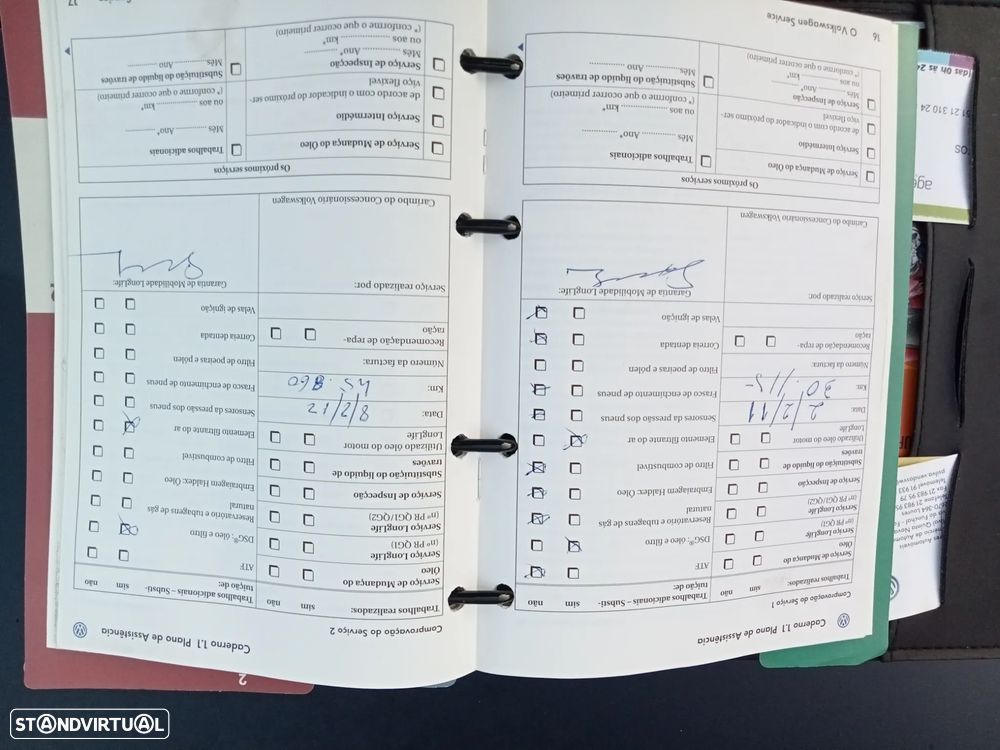 Caderno 1.1 Plano de Assistência
Comprovação do Serviço 1
Trabalhos realizados:
sim
Serviço de Mudança do
Óleo
Serviço LongLife
(nº PR QG1)
Serviço LongLife
(nºs PR QG1/QG2)
Serviço de Inspecção
Substituição do líquido de
travões
Utilizado óleo do motor
LongLife
Data: 2/2/11
Km: 30.115-
Número da factura:
Recomendação de repa-
ração
Serviço realizado por:
Carimbo do Concessionário Volkswagen
Trabalhos adicionais – Substi-
tuição de:
sim não
ATF
DSG®: óleo e filtro
Reservatório e tubagens de gás
natural
Embraiagem Haldex: Óleo
Filtro de combustível
Elemento filtrante do ar
Sensores da pressão dos pneus
Frasco de enchimento de pneus
Filtro de poeiras e pólen
Correia dentada
Velas de ignição
Garantia de Mobilidade LongLife:
Os próximos serviços
Serviço de Mudança do Óleo
Serviço Intermédio
de acordo com o indicador do próximo ser-
viço flexível
Serviço de Inspecção
Mês ............ Ano* ............
ou aos ............ km*
(* conforme o que ocorrer primeiro)
Trabalhos adicionais
Mês ............ Ano* ............
ou aos ............ km*
(* conforme o que ocorrer primeiro)
Substituição do líquido de travões
Mês ............ Ano ............
16 O Volkswagen Service
Caderno 1.1 Plano de Assistência
Comprovação do Serviço 2
Trabalhos realizados:
sim
Serviço de Mudança do
Óleo
Serviço LongLife
(nº PR QG1)
Serviço LongLife
(nºs PR QG1/QG2)
Serviço de Inspecção
Substituição do líquido de
travões
Utilizado óleo do motor
LongLife
Data: 8/2/12
Km: 45.860
Número da factura:
Recomendação de repa-
ração
Serviço realizado por:
Carimbo do Concessionário Volkswagen
Trabalhos adicionais – Substi-
tuição de:
sim não
ATF
DSG®: óleo e filtro
Reservatório e tubagens de gás
natural
Embraiagem Haldex: Óleo
Filtro de combustível
Elemento filtrante do ar
Sensores da pressão dos pneus
Frasco de enchimento de pneus
Filtro de poeiras e pólen
Correia dentada
Velas de ignição
Garantia de Mobilidade LongLife:
Os próximos serviços
Serviço de Mudança do Óleo
Serviço Intermédio
de acordo com o indicador do próximo ser-
viço flexível
Serviço de Inspecção
Mês ............ Ano* ............
ou aos ............ km*
(* conforme o que ocorrer primeiro)
Trabalhos adicionais
Mês ............ Ano* ............
ou aos ............ km*
(* conforme o que ocorrer primeiro)
Substituição do líquido de travões
Mês ............ Ano ............
17
2
STANDVIRTUAL